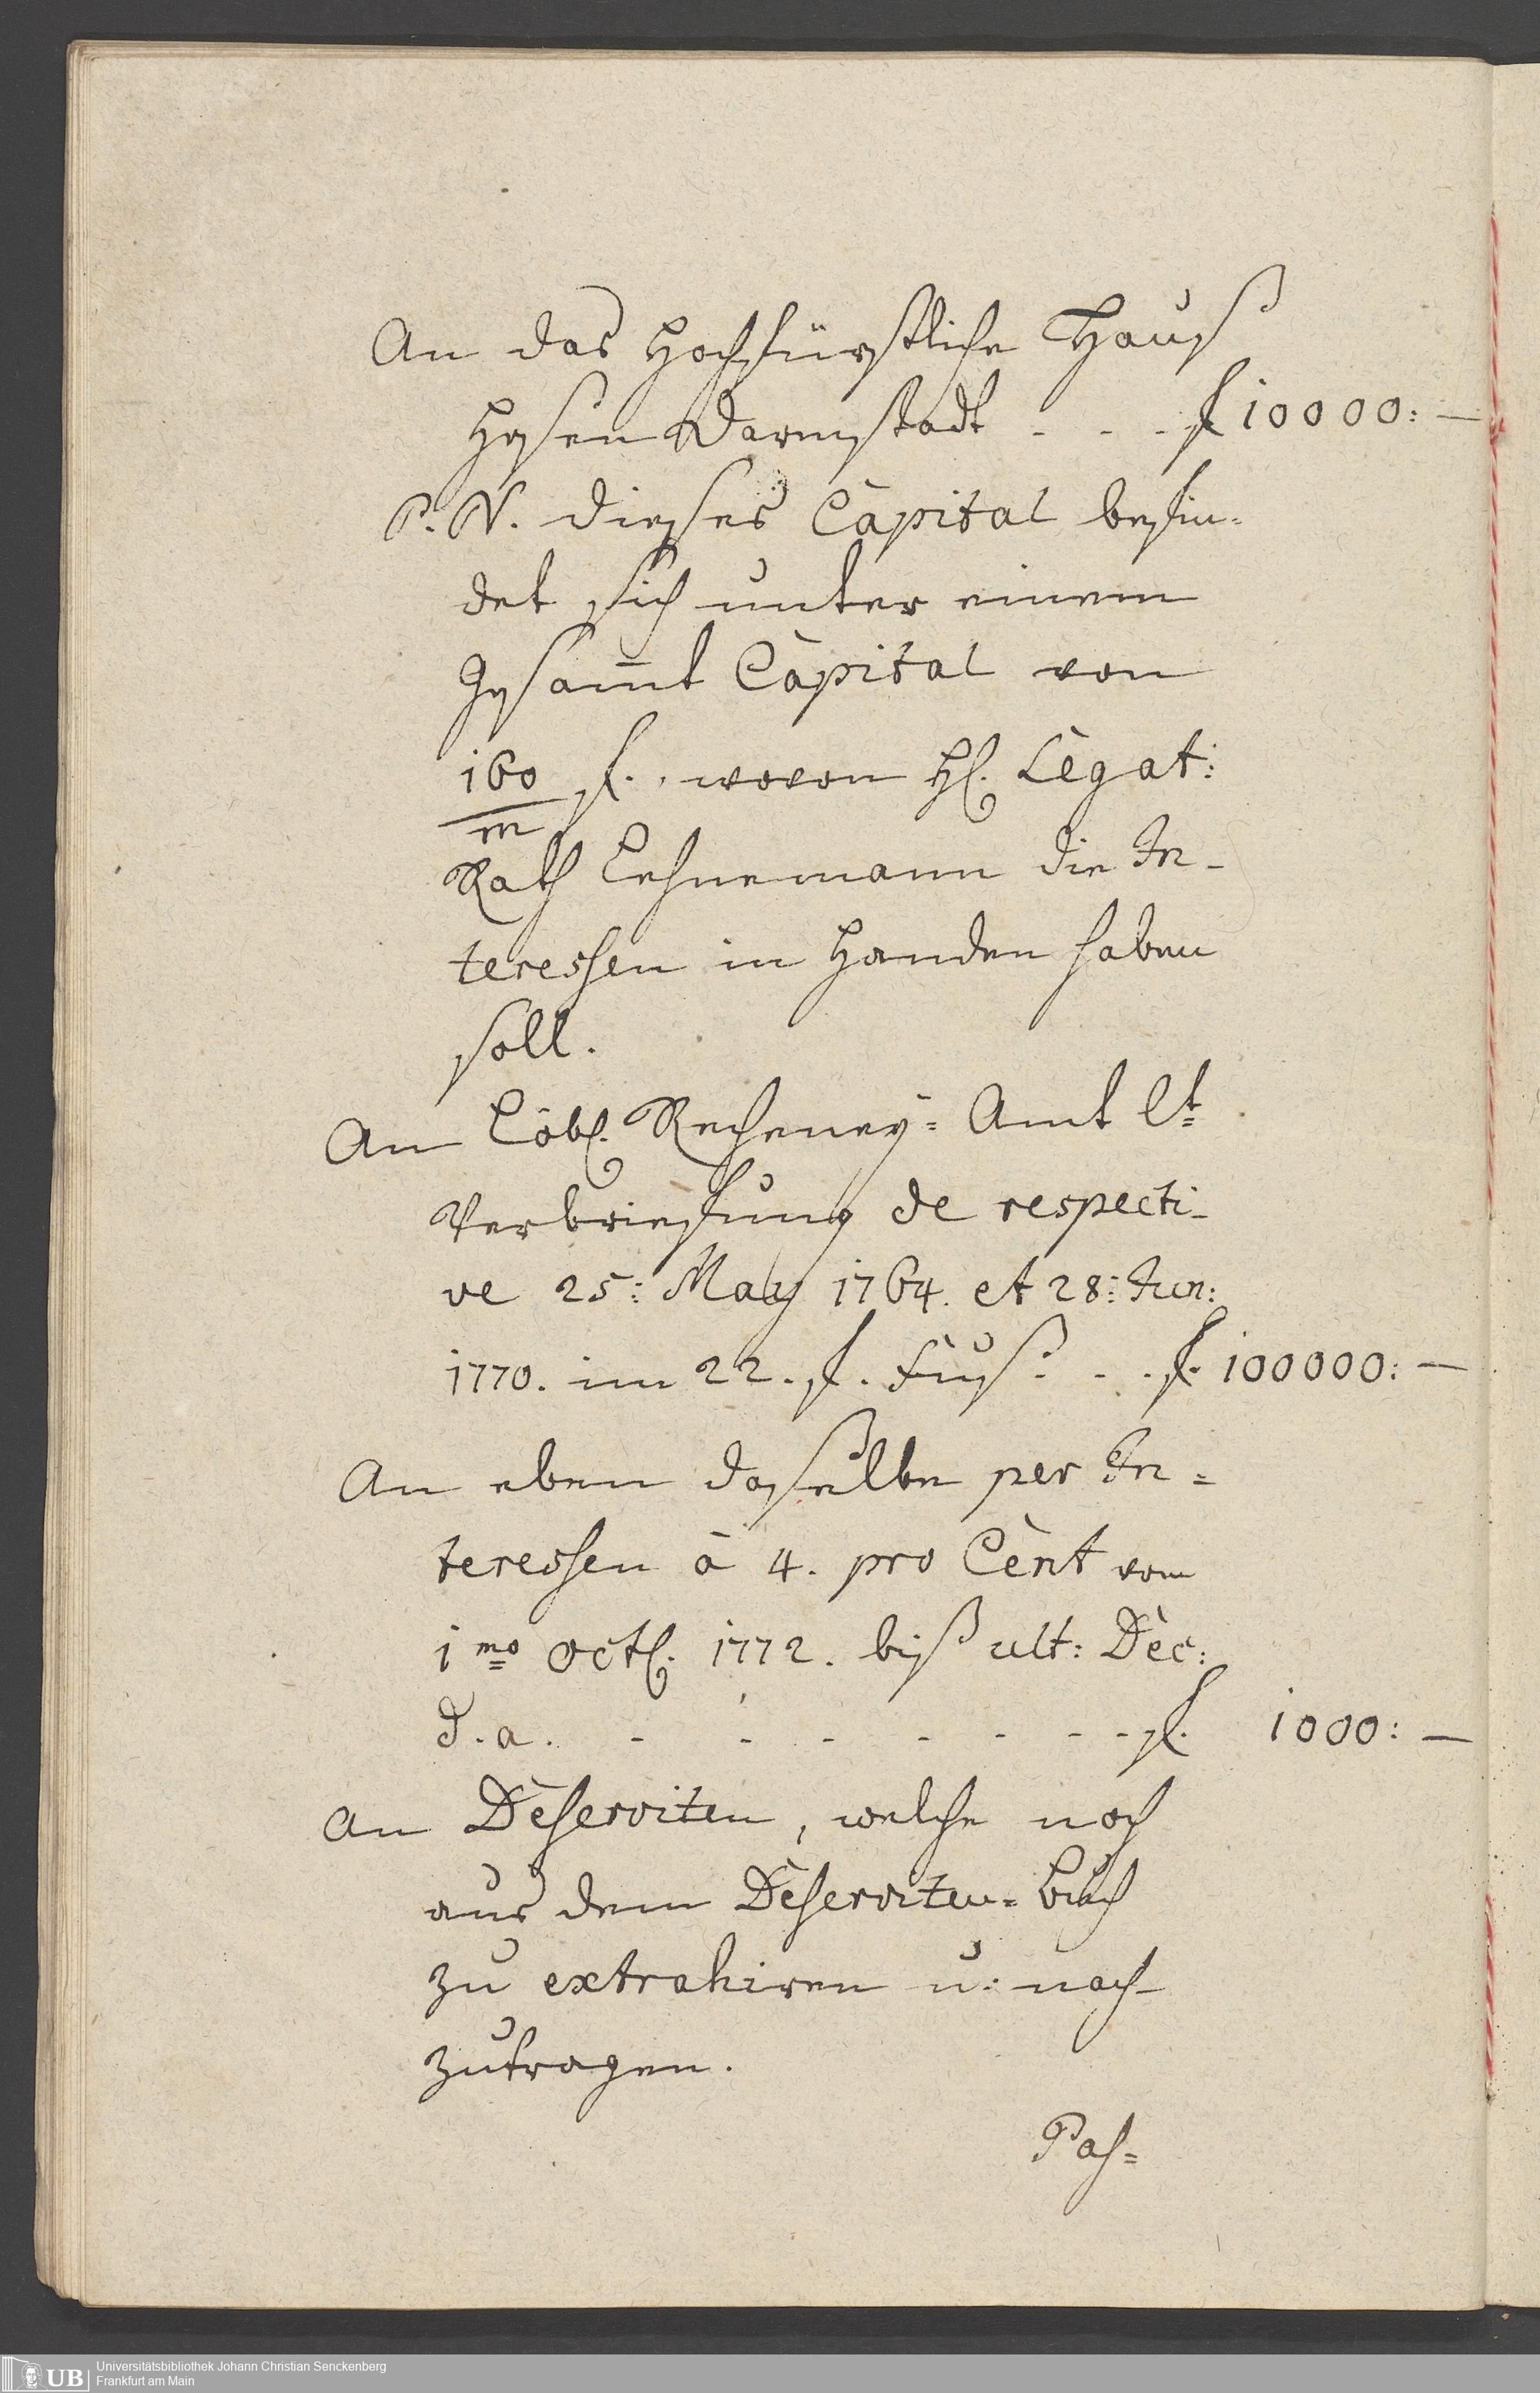 An das Hochfürstliche Hauß
Heßen Darmstadt - - - f 10000: —
P. N. dieses Capital befin-
det sich unter einem
Gesam̄t Capital von
160/m f., wovon H. Legat:
Rath Lehnemann die In-
teressen in Handen haben
soll.
An Löbl. Recheney-Amt lt
Verbriefung de respecti-
ve 25: May 1764. et 28: Jun:
1770. im 22. f. Fuß - - - f. 100000: —
An eben daßelbe per In-
teressen à 4. pro Cent vom
1mo Oct. 1772. biß ult: Dec:
d. a. - - - - - - - f. 1000: —
An Deserviten, welche noch
aus dem Deserviten-Buch
zu extrahiren u: nach-
zutragen.
Pas-
UB
Universitätsbibliothek Johann Christian Senckenberg
Frankfurt am Main